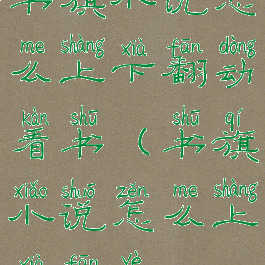 书旗小说怎
me shàng xià fān dòng
么上下翻动
kàn shū shū qí
看书（书旗
xiǎo shuō zěn me shàng
小说怎么上
xià fān yè